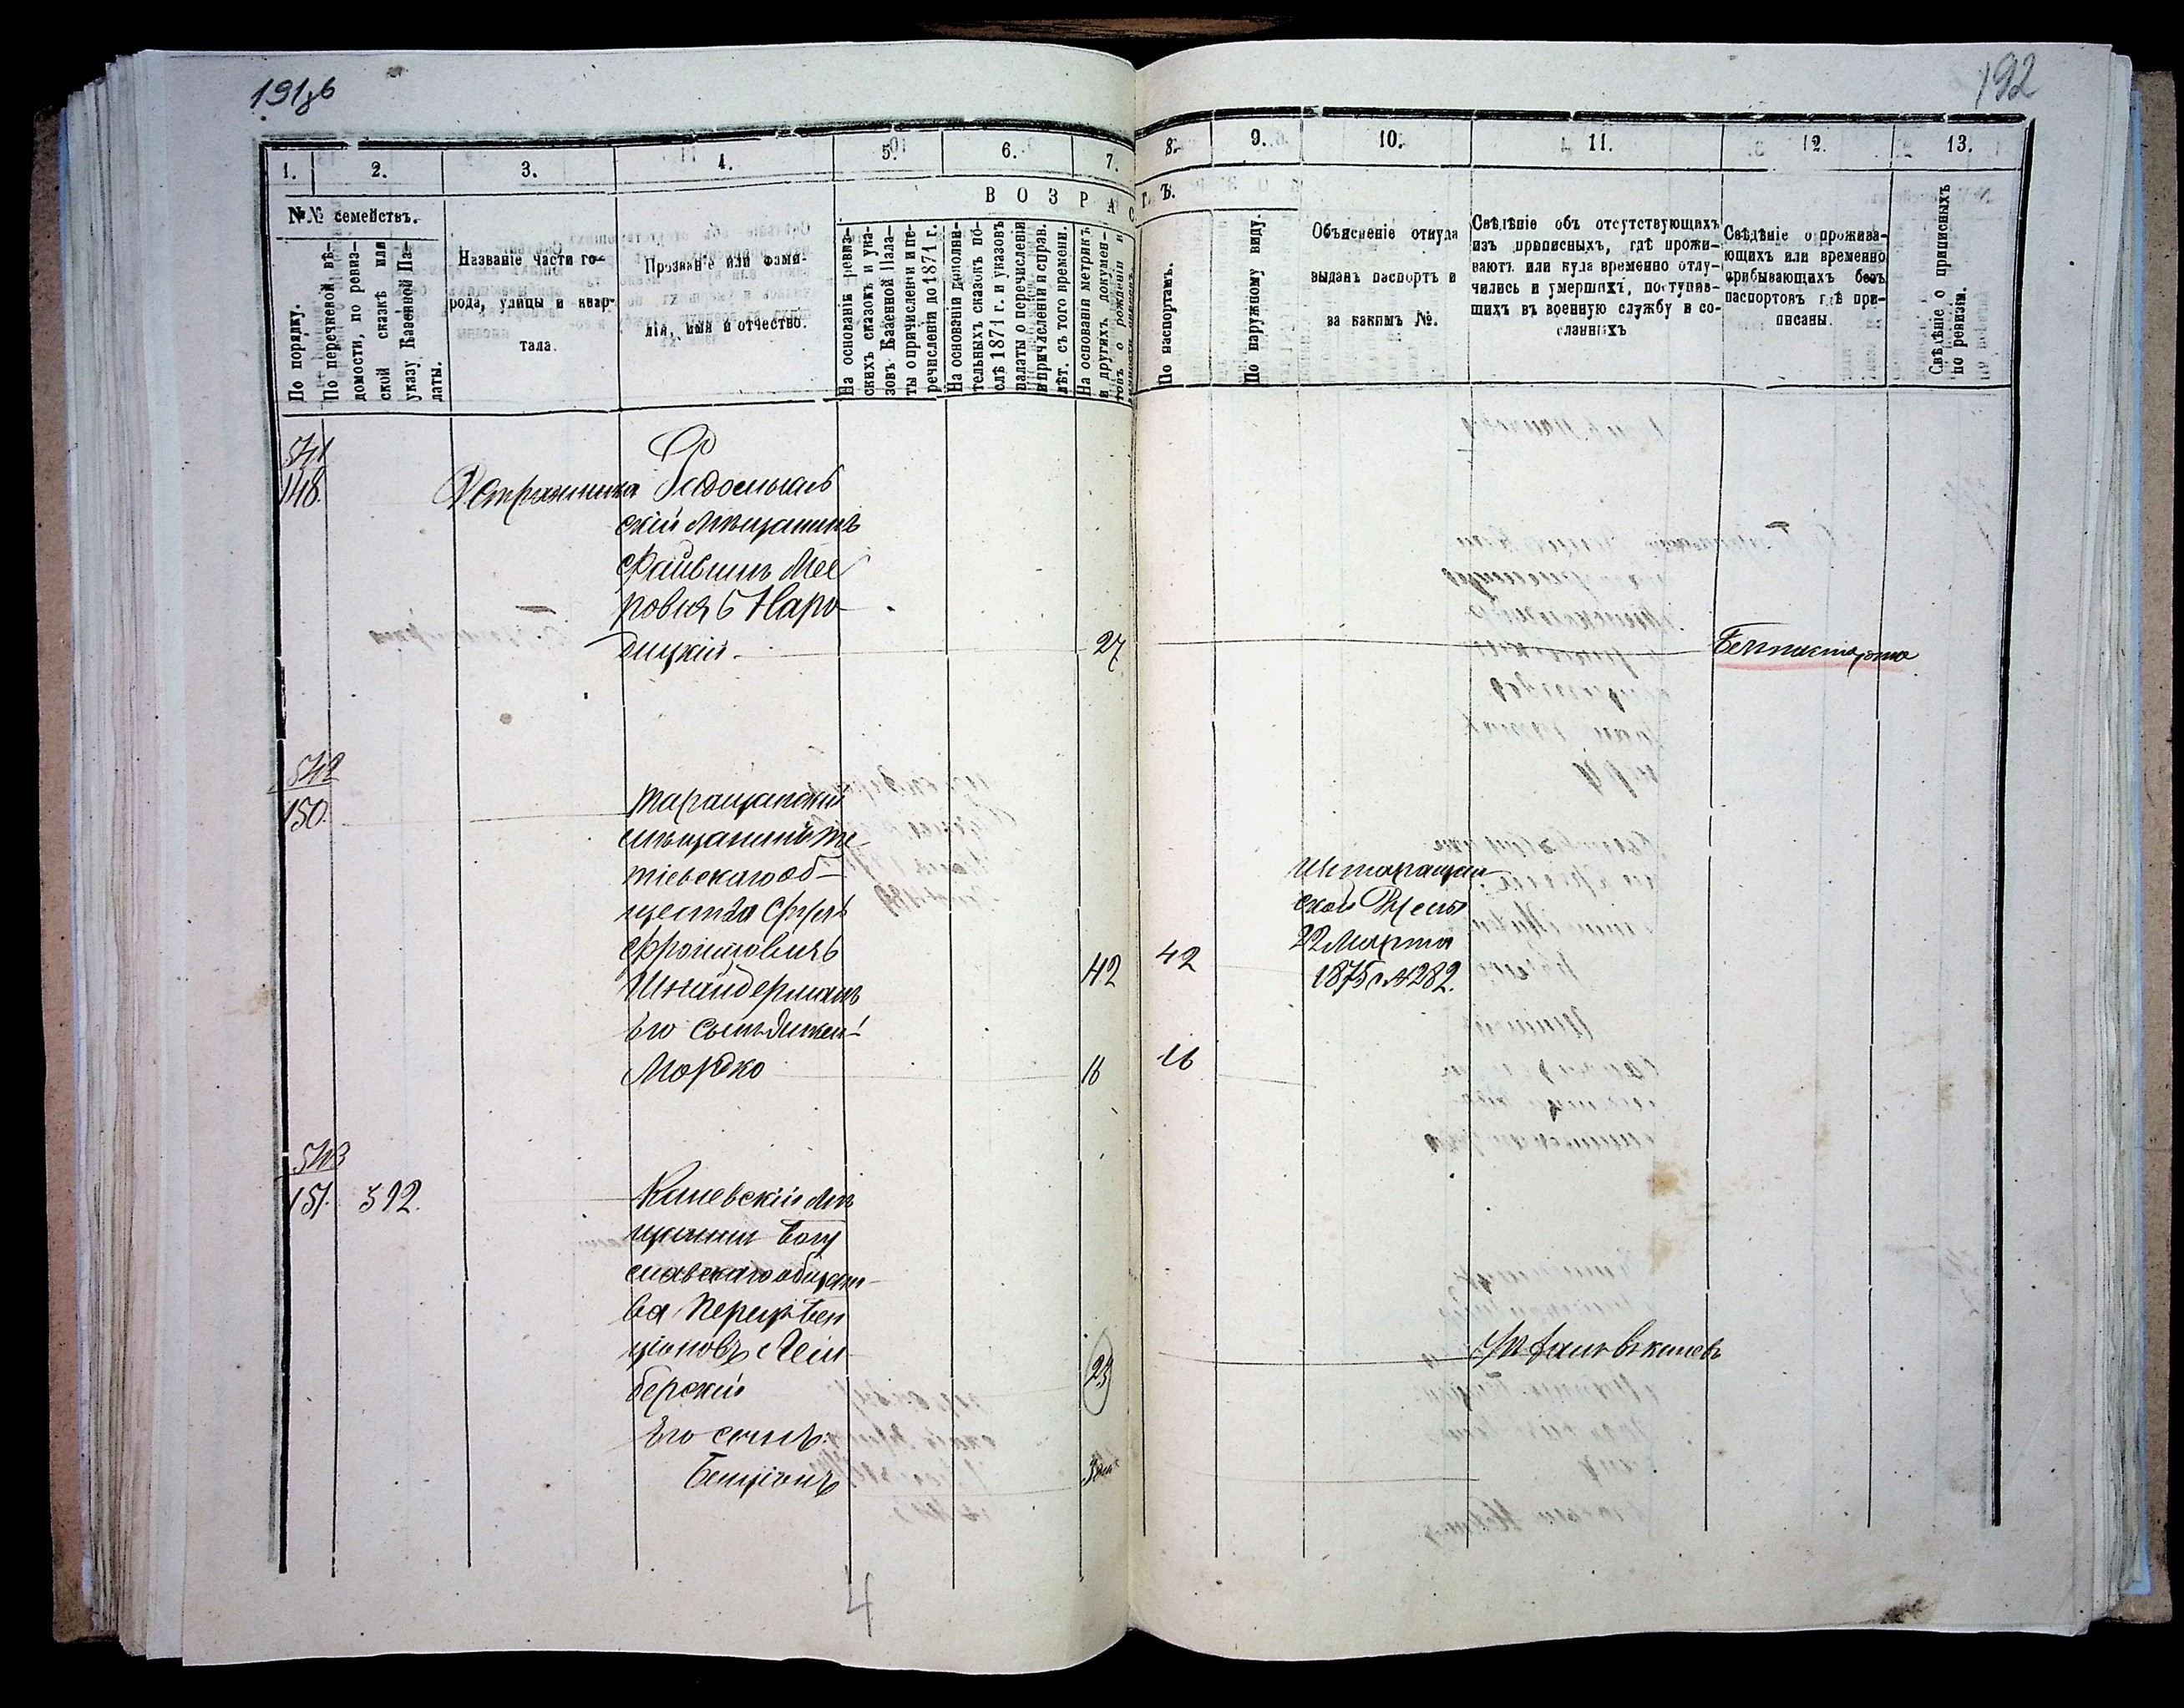 191зв
192
1.
2.
3.
4.
5.
6.
7.
8.
9.
10.
11.
12.
13.
№№ семействъ.
В О З Р А С
Т Ъ.
По порядку.
По перечневой вѣ-
домости, по ревиз-
ской сказкѣ или
указу Казенной Па-
латы.
Названіе части го-
рода, улицы и квар-
тала.
Прозваніе или фами-
лія, имя и отчество.
На основаніи ревиз-
скихъ сказокъ и ука-
зовъ Казенной Пала-
ты о причисленіи и пе-
речисленіи до 1871 г.
На основаніи дополни-
тельныхъ сказокъ по-
слѣ 1871 г. и указовъ
палаты о перечисленіи
и причисленіи и справ.
лѣт. съ того времени.
На основаніи метрикъ
и другихъ докумен-
товъ о рожденіи и
По паспортамъ.
По наружному виду.
Объясненіе откуда
выданъ паспортъ и
за какимъ №.
Свѣдѣніе объ отсутствующихъ
изъ приписныхъ, гдѣ прожи-
ваютъ или куда временно отлу-
чились и умершихъ, поступив-
шихъ въ военную службу и со-
сланныхъ
Свѣдѣніе о прожива-
ющихъ или временно
прибывающихъ безъ
паспортовъ гдѣ при-
писаны.
Свѣдѣніе о приписныхъ
по ревизіи.
541
148.
Радомысль
скій мѣщанинъ
Файвишъ Мее
ровичъ Наро
дицкій
27
Безъ паспорта
542
150.
Таращанский
мѣщанинъ Те
тіевскаго об-
щества Сруль
Фроимовичъ
Шнайдерманъ
42
42
Изъ таращан
ской
22 Марта
1875 г. №282.
Его сынъ
Мордко
16
16
543
151.
392.
Каневскій мѣ
щанинъ Богу
славскаго общест-
ва Перецъ Бен
ціоновъ Лем
берскій
23
въ каневѣ
Его сынъ:
Бенціонъ
4